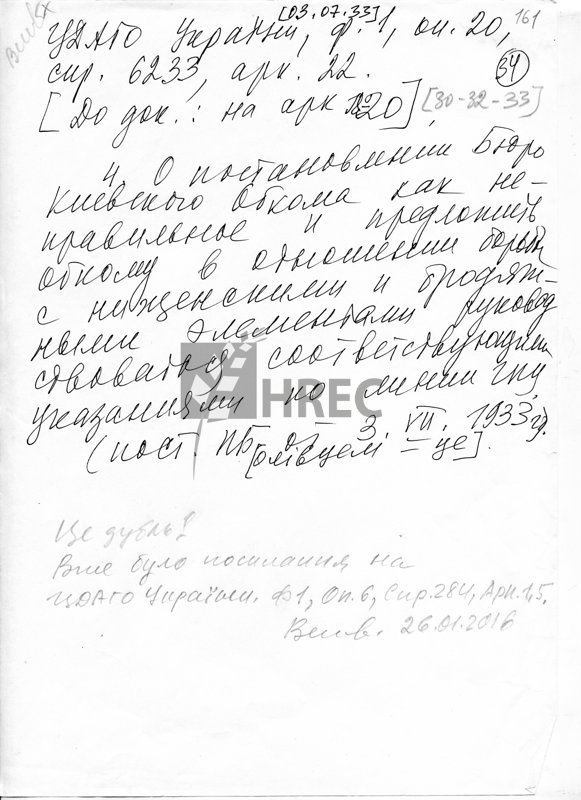 [03.07.33]
161
ЦДАГО України, ф. 1, оп. 20,
спр. 6233, арк. 22.
34
[До док.: на арк 20] [30-32-33]
4. О постановлении Бюро
Киевского Обкома как не-
правильное и предложить
обкому в отношении борьбы
с нищенскими и бродяж-
ными элементами руковод
ствоваться соответствующими
указаниями по линии гпу
(пост. ПБ от 3 VII. 1933 г).
[олівцем – це].
Це дубль!
Вже було посилання на
ЦДАГО України. Ф1, Оп.6, Спр.284, Арк.15.
26.01.2016
HREC